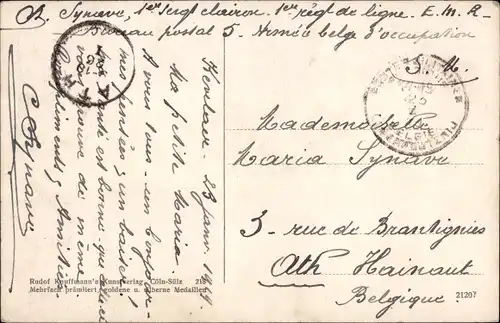 A. Synave, 1er Sergt clairon. 1er régt de ligne. E. M. R.
Bureau postal 5. Armée belge d'occupation
S. M.
ATH
Kevelaer. 23 janv. 1924
Ma petite Maria
A vous tous - un bonjour
mes pensées; un baiser!
santé est bonne
de même.
Compliments, Amitiés
C Synave
Mademoiselle
Maria Synave
3 - rue de Brantignies
Ath Hainaut
Belgique
Rudof Kauffmann's Kunstverlag, Cöln-Sülz 218
Mehrfach prämiiert, goldene u. silberne Medaillen
21207